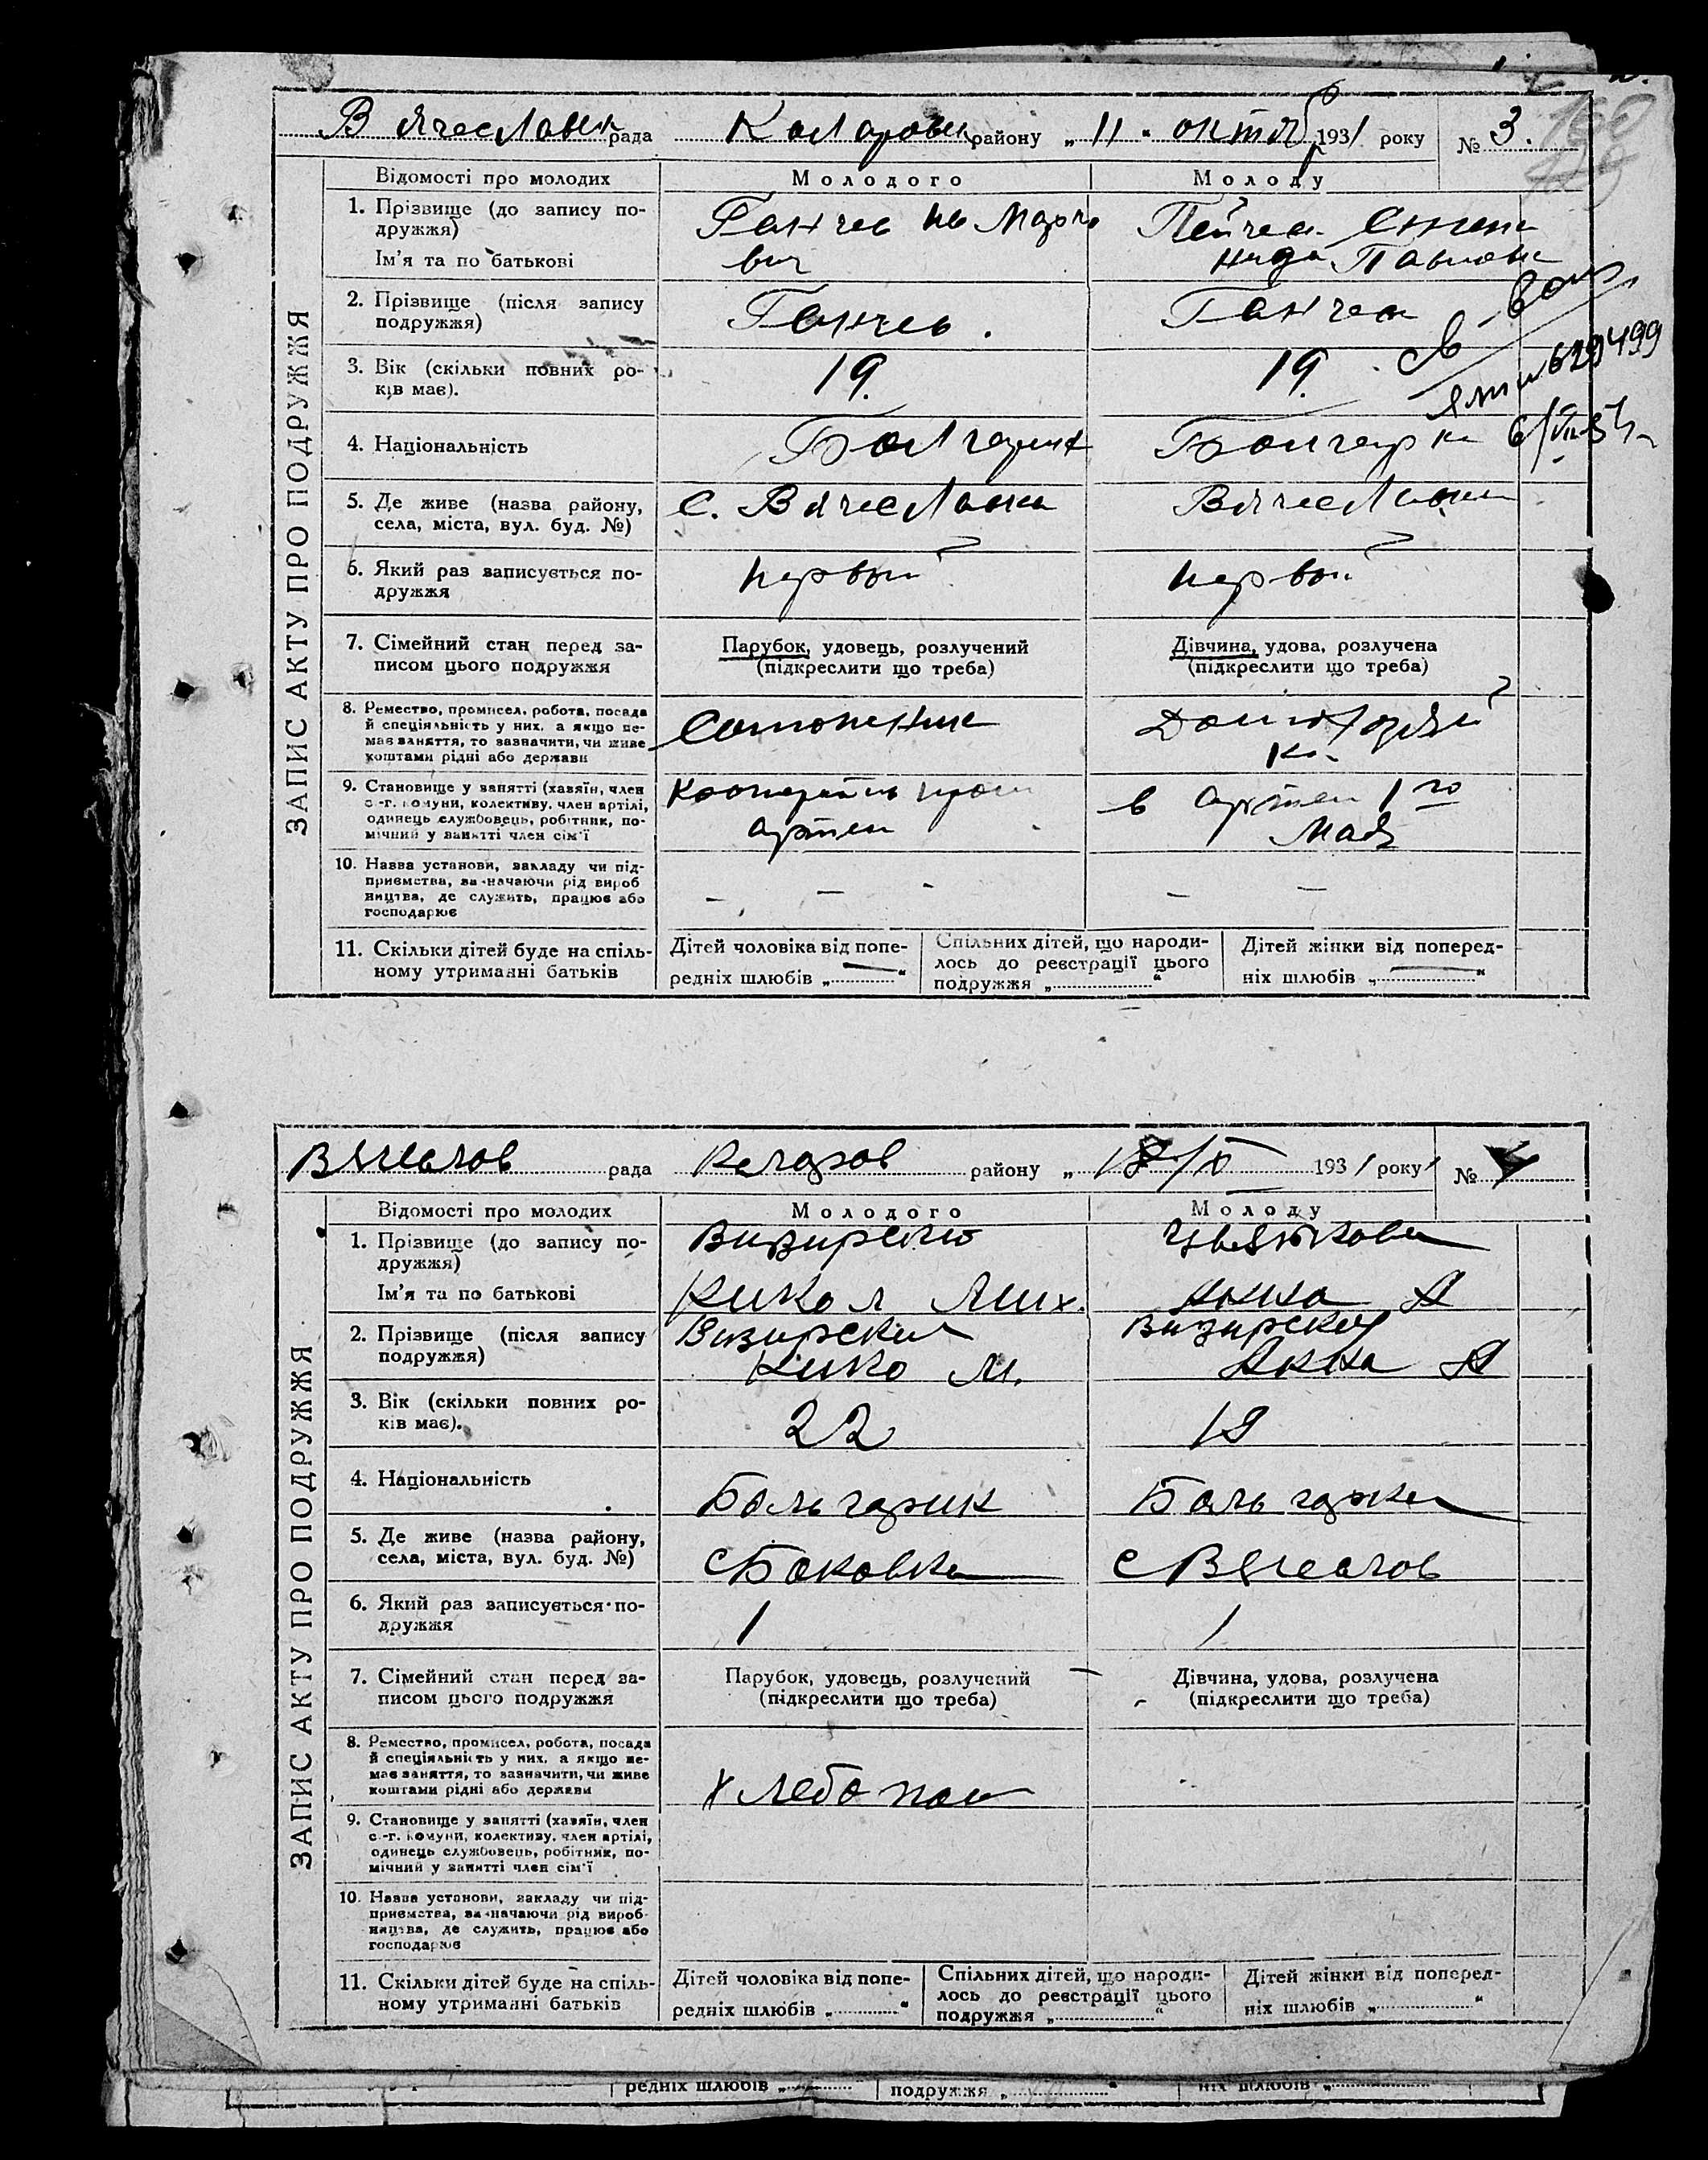 Вячеславск рада Коларовск району „ 11 " октяб 1931 року № 3.
ЗАПИС АКТУ ПРО ПОДРУЖЖЯ
Відомості про молодих Молодого Молоду
1. Прізвище (до запису по-
дружжя)
Ім'я та по батькові
Ганчев Ив Марко
вич
Пейчева
Павловна
2. Прізвище (після запису
подружжя)
Ганчев.
Ганчева
3. Вік (скільки повних ро-
ків має).
19.
19.
629499
4. Національність
Болгарин
Болгарка
5. Де живе (назва району,
села, міста, вул. буд. №)
с. Вячеславка
Вячеславка
6. Який раз записується по-
дружжя
первый
первый
7. Сімейний стан перед за-
писом цього подружжя
Парубок, удовець, розлучений
(підкреслити що треба)
Дівчина, удова, розлучена
(підкреслити що треба)
8. Ремество, промисел, робота, посада
й спеціяльність у них, а якщо не-
має заняття, то зазначити, чи живе
коштами рідні або держави
Сапожник
Домохозяй
ка
9. Становище у занятті (хазяїн, член
с.-г. комуни, колективу, член артілі,
одинець службовець, робітник, по-
мічний у занятті член сім'ї
артели
в артели 1го
Мая
10. Назва установи, закладу чи під-
приємства, зазначаючи рід вироб
ництва, де служить, працює або
господарює
– – -
– –
11. Скільки дітей буде на спіль-
ному утриманні батьків
Дітей чоловіка від попе-
редніх шлюбів „ — "
Спільних дітей, що народи-
лось до реєстрації цього
подружжя „ "
Дітей жінки від поперед-
ніх шлюбів „ — "
Вячеслов рада Коларов району „ 18/X 1931 року № 4
ЗАПИС АКТУ ПРО ПОДРУЖЖЯ
Відомості про молодих Молодого Молоду
1. Прізвище (до запису по-
дружжя)
Ім'я та по батькові
Визирского
Мих.
Цвяткова
Анна А
2. Прізвище (після запису
подружжя)
Визирский
М.
Визирская
Анна А
3. Вік (скільки повних ро-
ків має).
22
18
4. Національність
Больгарин
Больгарка
5. Де живе (назва району,
села, міста, вул. буд. №)
с Вячеслов
6. Який раз записується по-
дружжя
1
1
7. Сімейний стан перед за-
писом цього подружжя
Парубок, удовець, розлучений
(підкреслити що треба)
Дівчина, удова, розлучена
(підкреслити що треба)
8. Ремество, промисел, робота, посада
й спеціяльність у них, а якщо не-
має заняття, то зазначити, чи живе
коштами рідні або держави
хлебопаш
9. Становище у занятті (хазяїн, член
с.-г. комуни, колективу, член артілі,
одинець службовець, робітник, по-
мічний у занятті член сім'ї
10. Назва установи, закладу чи під-
приємства, зазначаючи рід вироб-
ництва, де служить, працює або
господарює
11. Скільки дітей буде на спіль-
ному утриманні батьків
Дітей чоловіка від попе-
редніх шлюбів „ "
Спільних дітей, що народи-
лось до реєстрації цього
подружжя „ "
Дітей жінки від поперед-
ніх шлюбів „ "
редніх шлюбів „ подружжя „ " ніх шлюбів „